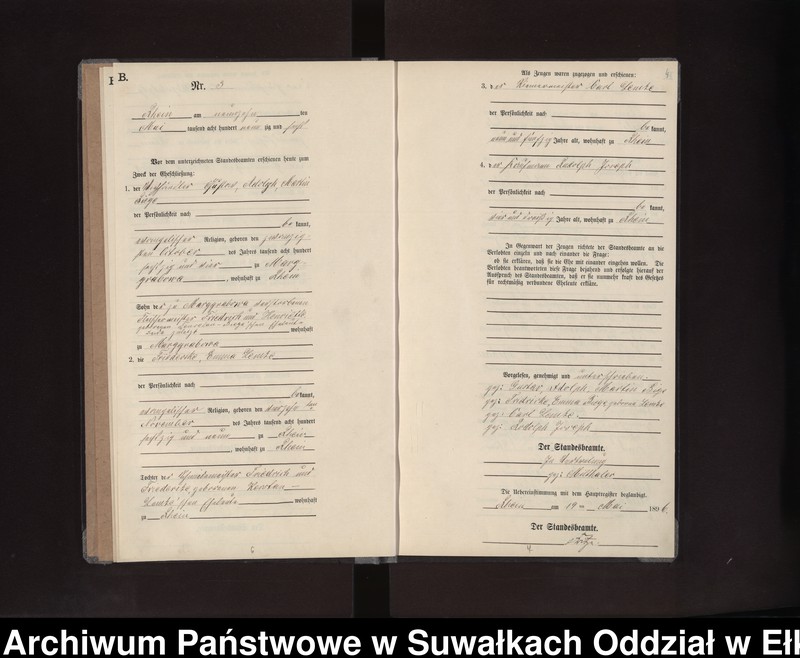 B.
Nr. 3
Rhein am neunzehn ten
Mai tausend acht hundert neun zig und sechs
Vor dem unterzeichneten Standesbeamten erschienen heute zum
Zweck der Eheschließung:
1. der Gustav, Adolph, Martin
der Persönlichkeit nach
be kannt,
evangelischer Religion, geboren den zwanzig-
sten October des Jahres tausend acht hundert
sechszig und vier zu Marg-
grabowa, wohnhaft zu Rhein
Sohn des zu Marggrabowa verstorbenen
Friedrich und Henriette
geborene
wohnhaft
zu Marggrabowa
2. die Friederike, Emma Lemke
der Persönlichkeit nach
be kannt,
evangelischer Religion, geboren den
November des Jahres tausend acht hundert
sechszig und neun zu Rhein
, wohnhaft zu Rhein
Tochter des Friedrich und
Friederike geborenen
Lemke'schen Eheleute wohnhaft
zu Rhein
6
Als Zeugen waren zugezogen und erschienen:
3. der Carl Lemke
der Persönlichkeit nach
be kannt,
neun und fünfzig Jahre alt, wohnhaft zu Rhein
4. der Kaufmann Rudolph Joseph
der Persönlichkeit nach
be kannt,
Jahre alt, wohnhaft zu Rhein
In Gegenwart der Zeugen richtete der Standesbeamte an die
Verlobten einzeln und nach einander die Frage:
ob sie erklären, daß sie die Ehe mit einander eingehen wollen. Die
Verlobten beantworteten diese Frage bejahend und erfolgte hierauf der
Ausspruch des Standesbeamten, daß er sie nunmehr kraft des Gesetzes
für rechtmäßig verbundene Eheleute erkläre.
Vorgelesen, genehmigt und unterschrieben
gez: Gustav, Adolph, Martin
gez: Friederike, Emma geborene Lemke
gez: Carl Lemke
gez: Rudolph Joseph
Der Standesbeamte.
In Vertretung
gez:
Die Uebereinstimmung mit dem Hauptregister beglaubigt.
Rhein am 19 ten Mai 1896.
Der Standesbeamte.
4
Archiwum Państwowe w Suwałkach Oddział w Ełk